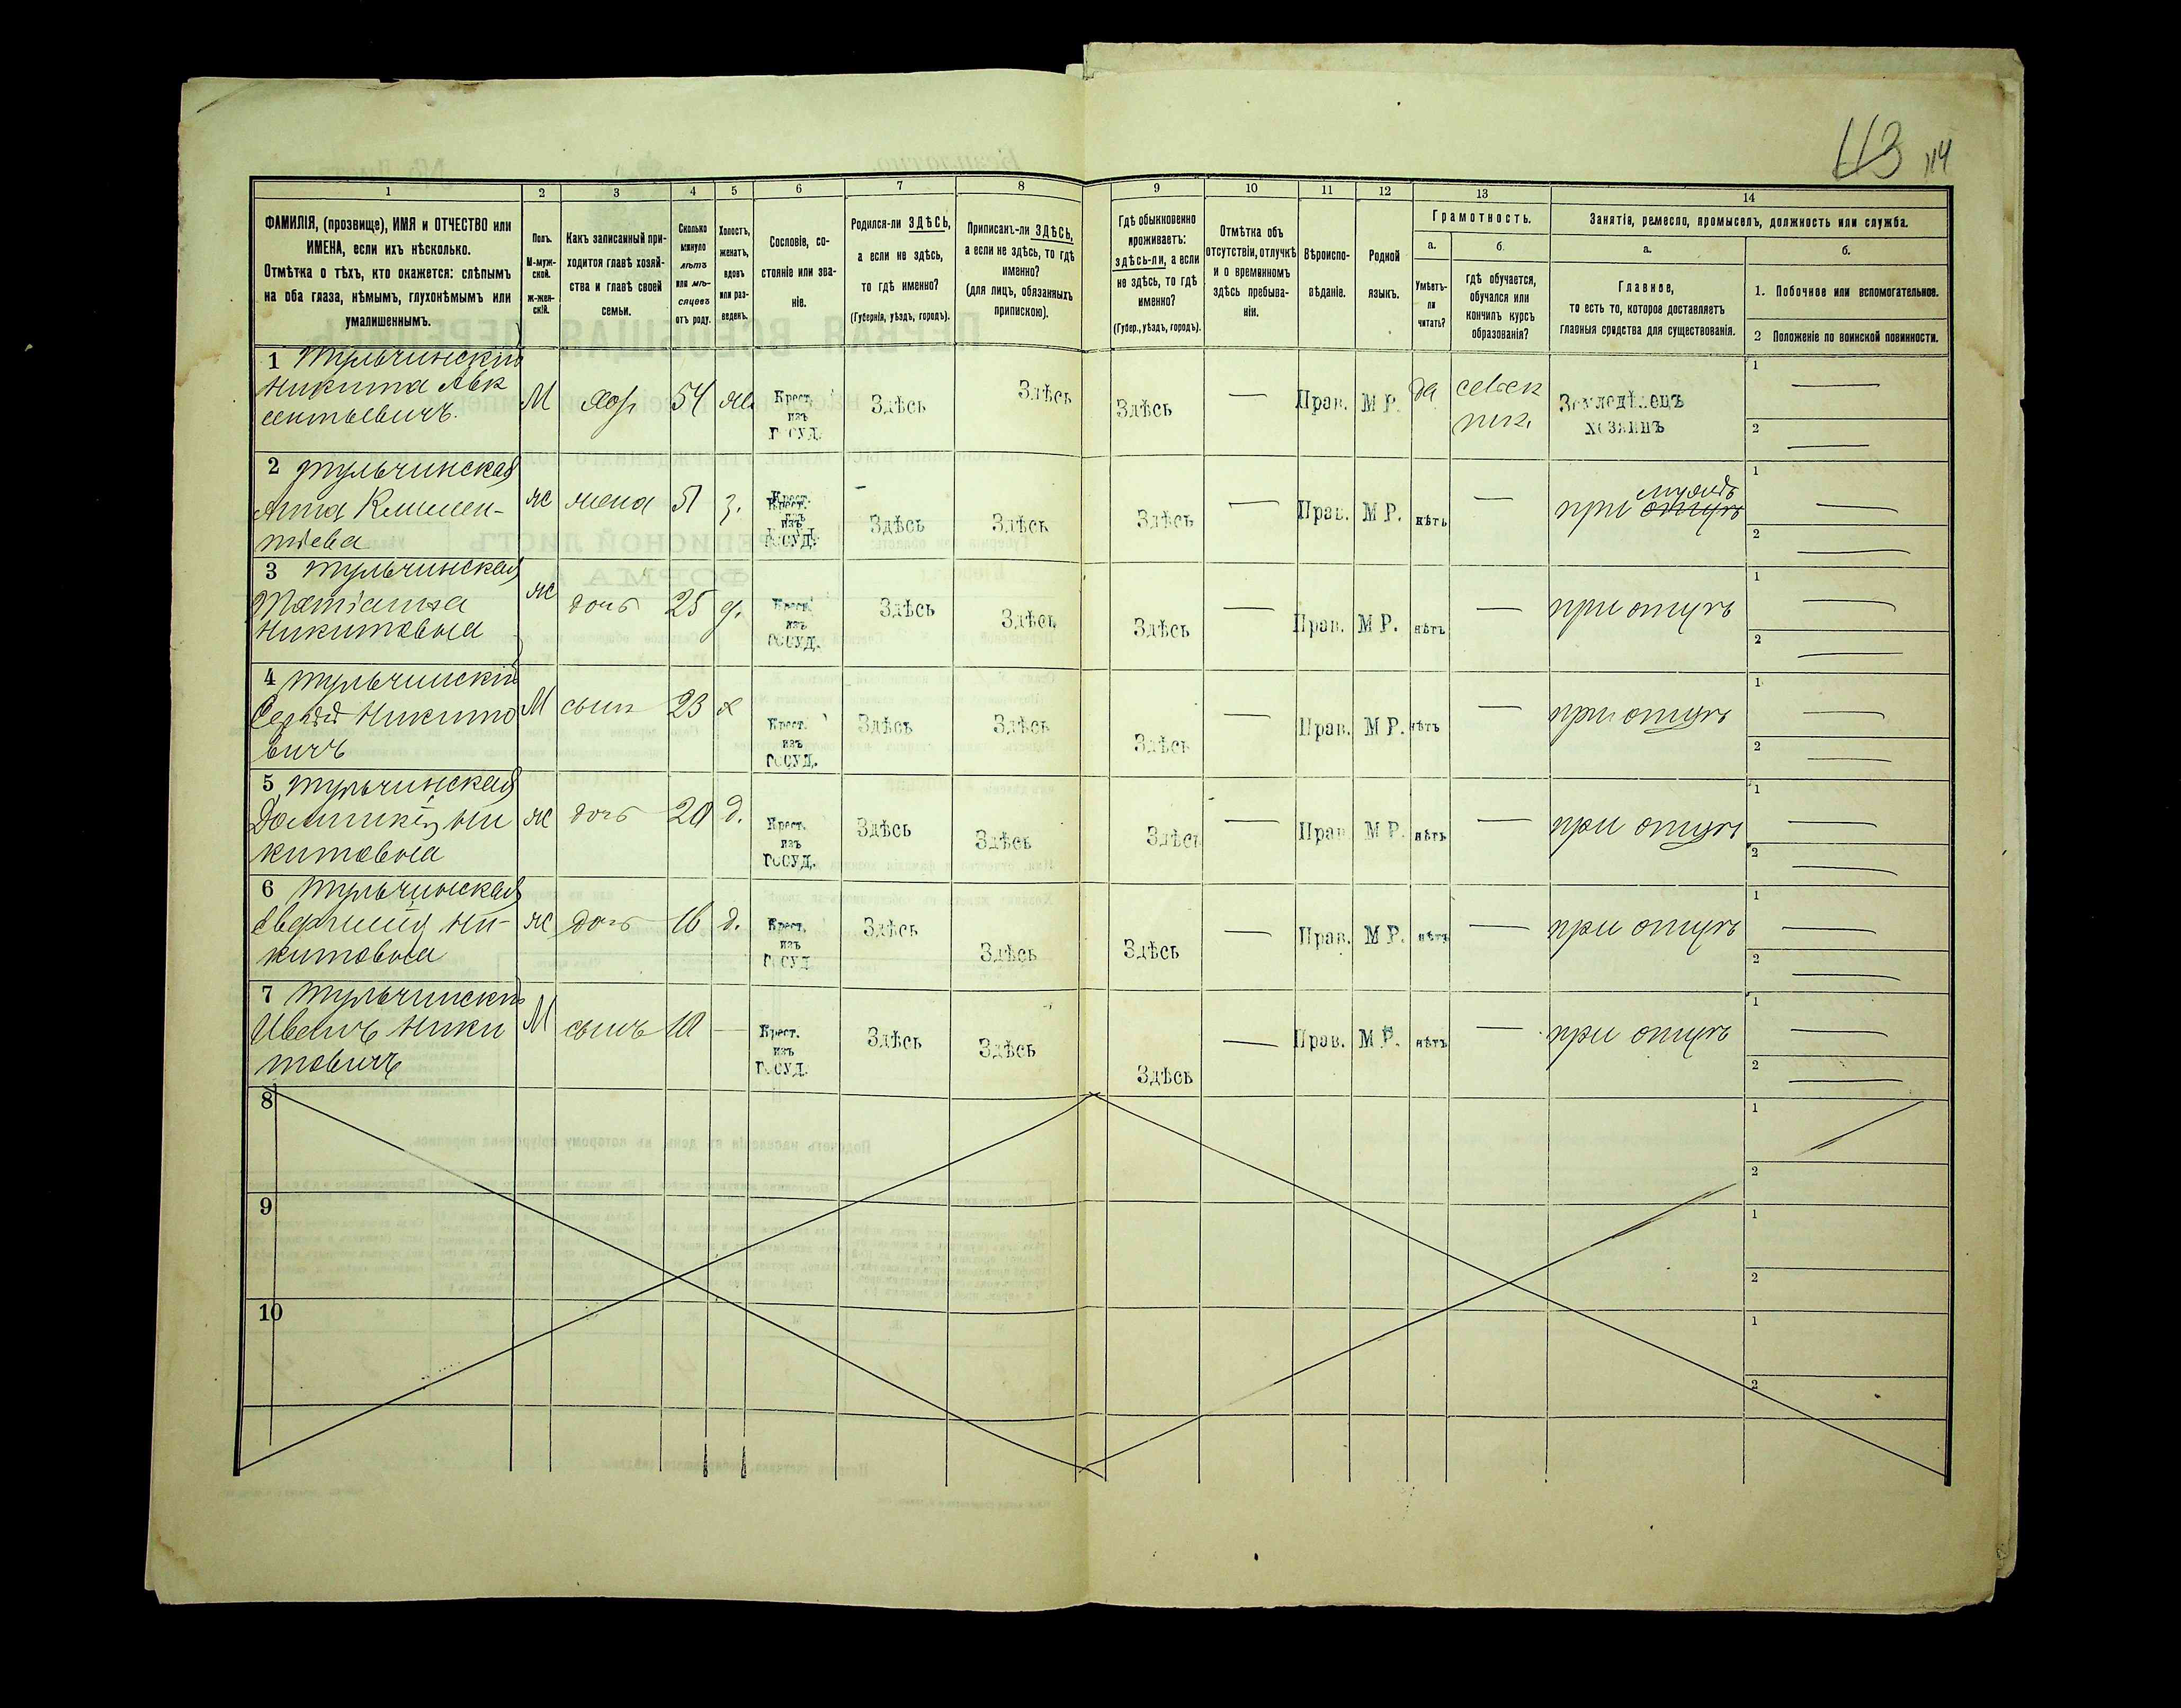 113 114
1 2 3 4 5 6 7 8 9 10 11 12 13 14
ФАМИЛІЯ, (прозвище), ИМЯ и ОТЧЕСТВО или ИМЕНА, если ихъ нѣсколько.
Отмѣтка о тѣхъ, кто окажется: слѣпымъ на оба глаза, нѣмымъ, глухонѣмымъ или умалишеннымъ.
Полъ. М-муж-ской. ж-жен-скій.
Какъ записанный при-ходится главѣ хозяй-ства и главѣ своей семьи.
Сколько минуло лѣтъ или мѣ-сяцевъ отъ роду.
Холостъ, женатъ, вдовъ или раз-веденъ.
Сословіе, со-стояніе или зва-ніе.
Родился-ли ЗДѢСЬ, а если не здѣсь, то гдѣ именно?
(Губернія, уѣздъ, городъ).
Приписанъ-ли ЗДѢСЬ, а если не здѣсь, то гдѣ именно?
(для лицъ, обязанныхъ припискою).
Гдѣ обыкновенно проживаетъ: здѣсь-ли, а если не здѣсь, то гдѣ именно?
(Губер., уѣздъ, городъ).
Отмѣтка объ отсутствіи, отлучкѣ и о временномъ здѣсь пребыва-ніи.
Вѣроиспо-вѣданіе.
Родной языкъ.
Грамотность.
а. Умѣетъ-ли читать?
б. гдѣ обучается, обучался или кончилъ курсъ образованія?
Занятія, ремесло, промыселъ, должность или служба.
а. Главное, то есть то, которое доставляетъ главныя средства для существованія.
б.
1. Побочное или вспомогательное.
2 Положеніе по воинской повинности.
1 Тульчинскій М хоз 54 Крест. изъ ГОСУД. Здѣсь Здѣсь Здѣсь — Прав. М Р. да Земледѣлецъ хозяинъ 1 —
Никита Авк
сентьевичъ. 2 —
2 Тульчинская ж жена 51 з. Крест. изъ ГОСУД. Здѣсь Здѣсь Здѣсь — Прав. М Р. нѣтъ — при мужѣ 1 —
Анна Климен-
тіева 2 —
3 Тульчинская ж дочь 25 Крест. изъ ГОСУД. Здѣсь Здѣсь Здѣсь — Прав. М Р. нѣтъ — при отцѣ 1 —
Татіана
Никитовна 2 —
4 Тульчинскій М сынъ 23 х Крест. изъ ГОСУД. Здѣсь Здѣсь Здѣсь — Прав. М Р. нѣтъ — при отцѣ 1 —
Сергѣй Никито
вичъ 2 —
5 Тульчинская ж дочь 20 д. Крест. изъ ГОСУД. Здѣсь Здѣсь Здѣсь — Прав. М Р. нѣтъ — при отцѣ 1 —
Домникія Ни
китовна 2 —
6 Тульчинская ж дочь 16 д. Крест. изъ ГОСУД. Здѣсь Здѣсь Здѣсь — Прав. М Р. нѣтъ — при отцѣ 1 —
Ни-
китовна 2 —
7 Тульчинскій М сынъ 10 — Крест. изъ ГОСУД. Здѣсь Здѣсь Здѣсь — Прав. М Р. нѣтъ — при отцѣ 1 —
Иванъ Ники
товичъ 2 —
8 1 2
9 1 2
10 1 2